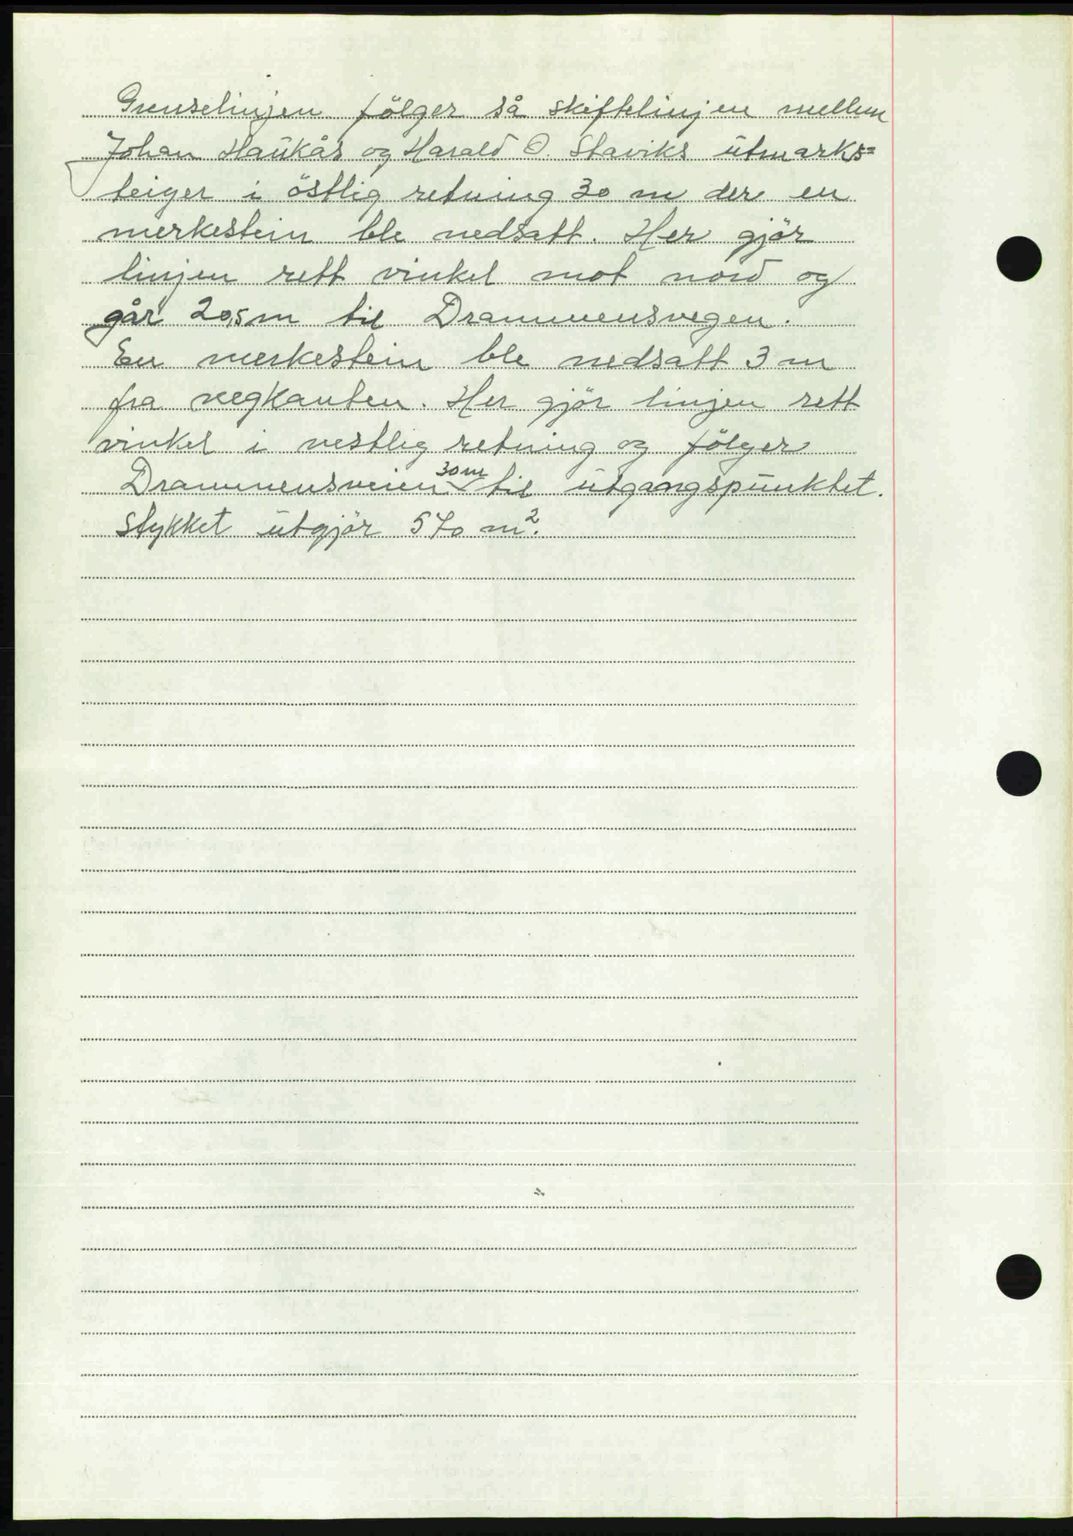 Grenselinjen følger så skiftelinjen mellem
Johan Haukås og Harald O. Staviks utmarks=
teiger i östlig retning 30 m der en
merkestein ble nedsatt. Her gjör
linjen rett vinkel mot nord og
går 20,5 m til Drammensvegen.
En merkestein ble nedsatt 3 m
fra vegkanten. Her gjör linjen rett
vinkel i vestlig retning og fölger
Drammensveien 30 m til utgangspunktet.
Stykket utgjör 570 m².